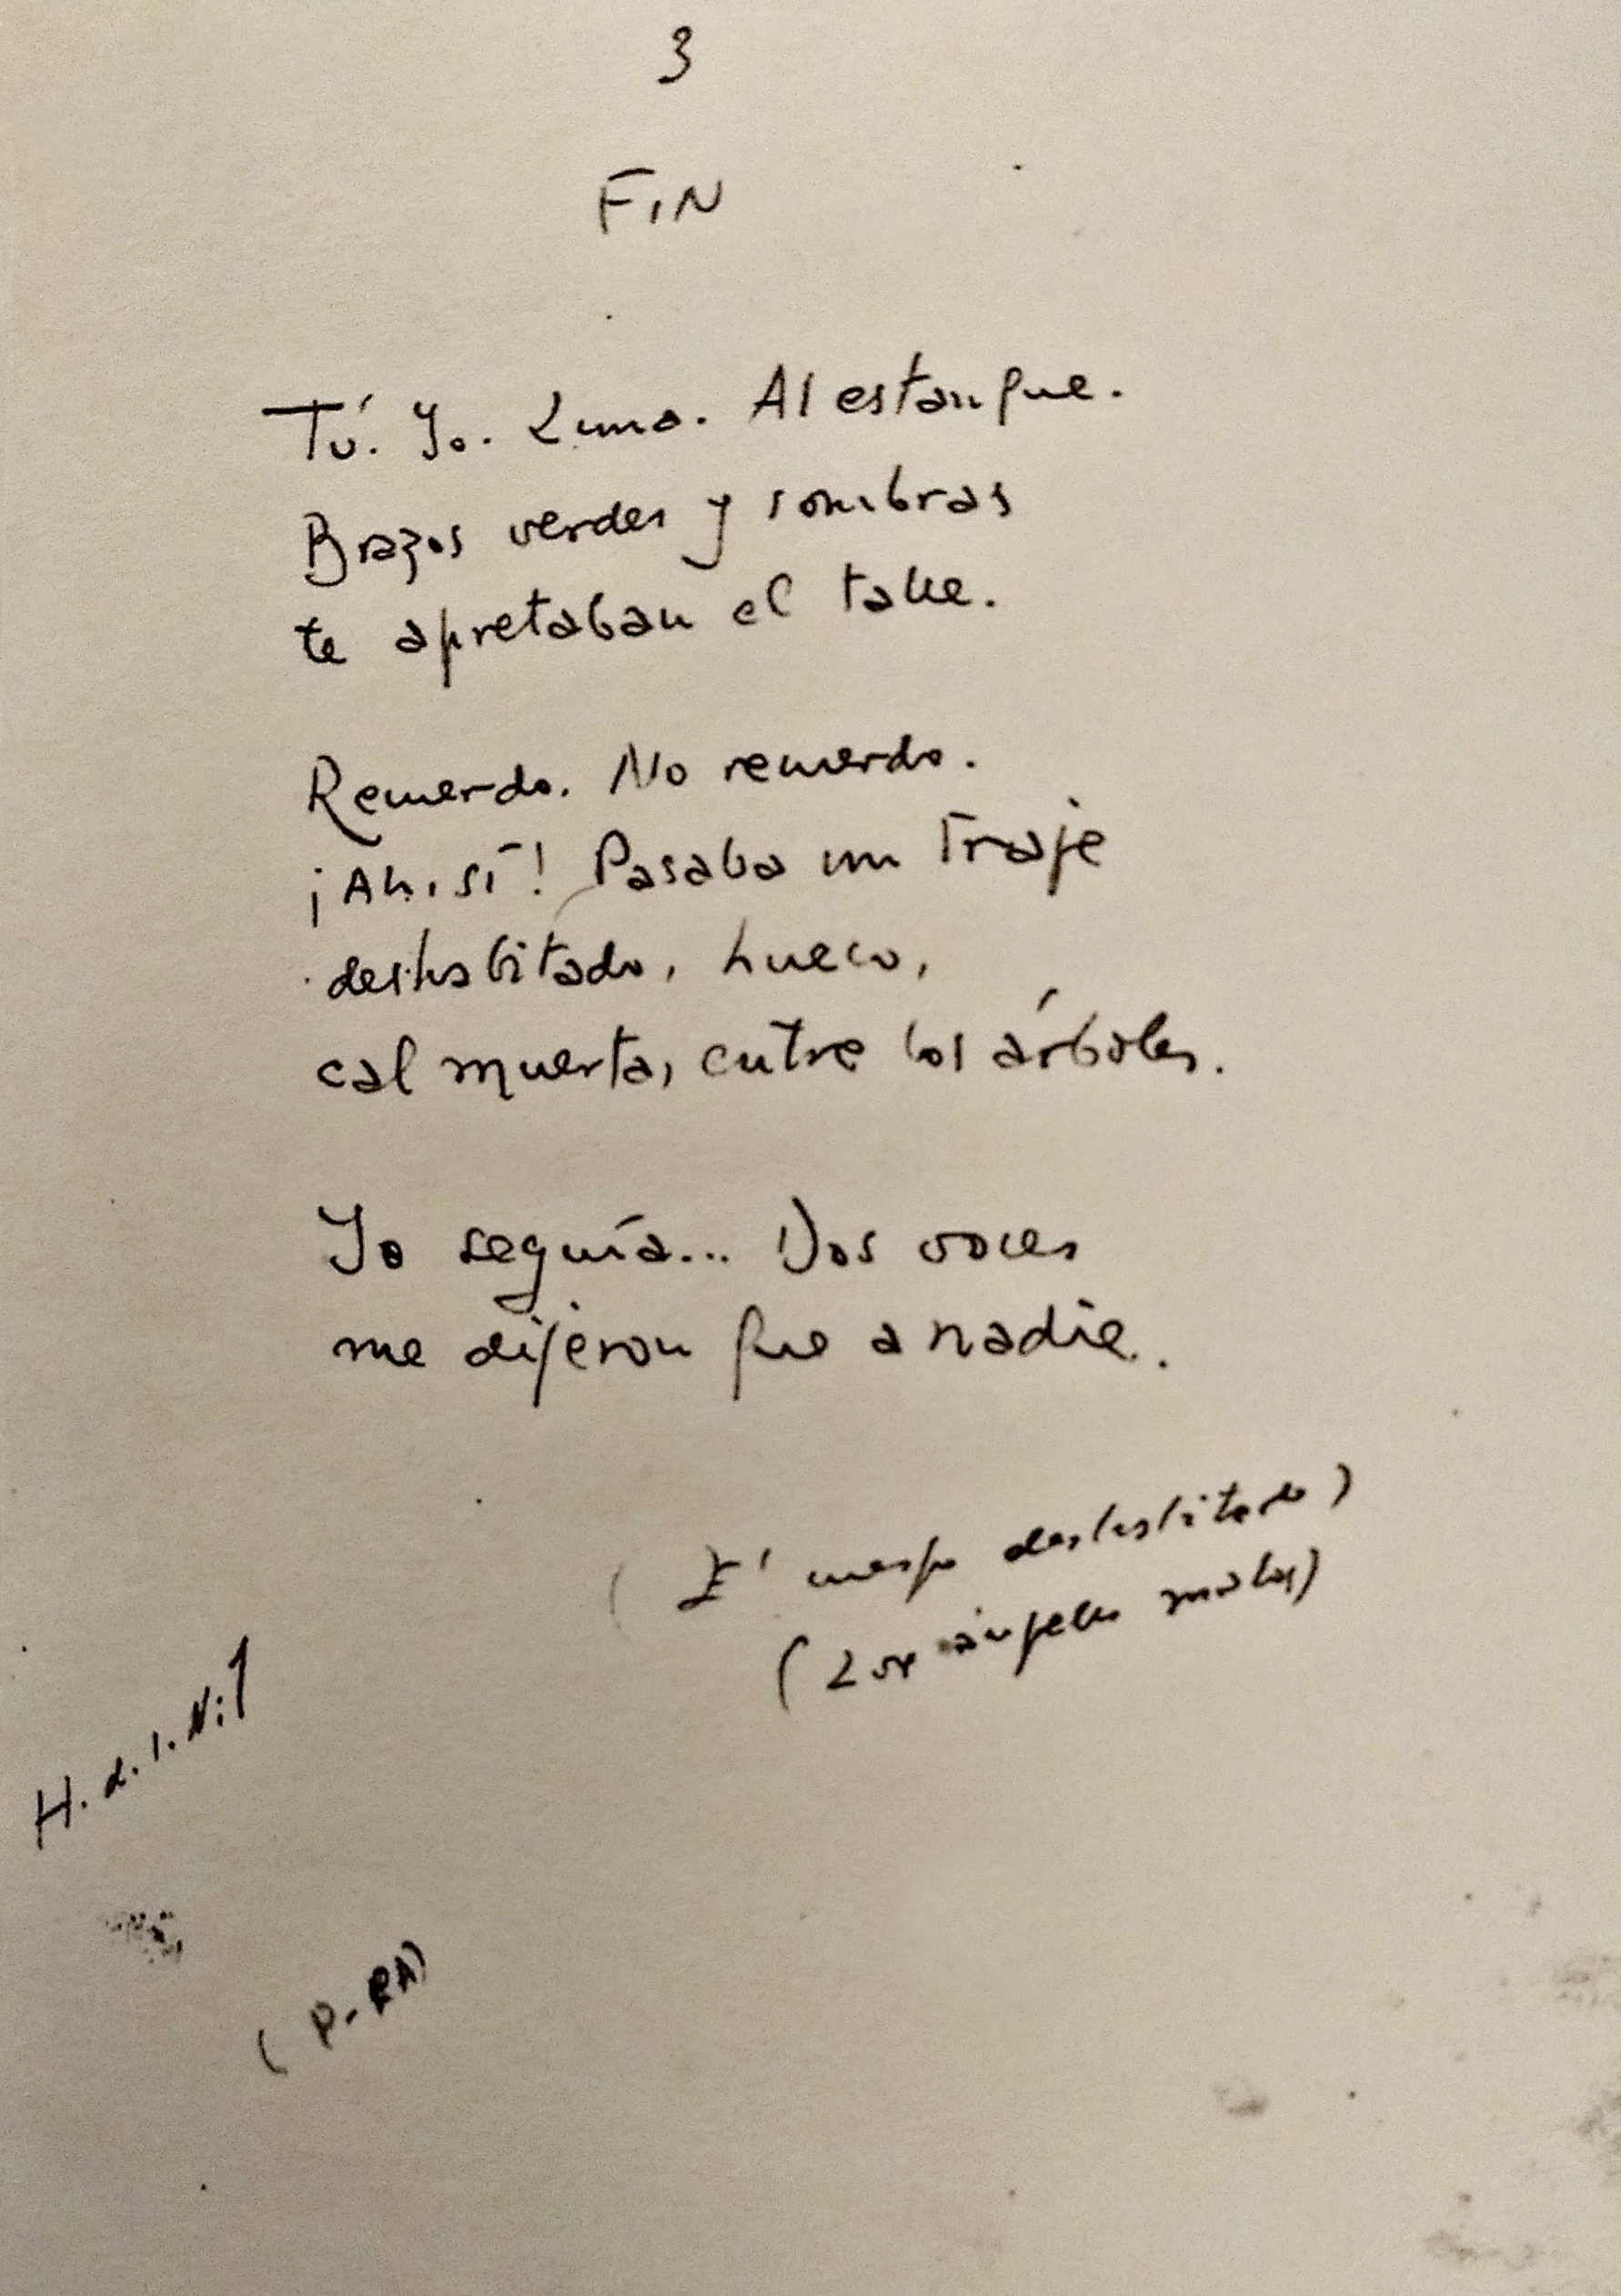 3
FIN
Tú. Yo. Luna. Al estanque.
Brazos verdes y sombras
te apretaban el talle.
Recuerdo. No recuerdo.
¡Ah, sí! Pasaba un traje
deshabitado, hueco,
cal muerta, entre los árboles.
Yo seguía... Dos voces
me dijeron que a nadie.
(El cuerpo deshabitado)
(Los ángeles malos)
H. d. l. N:1
(P-RA)